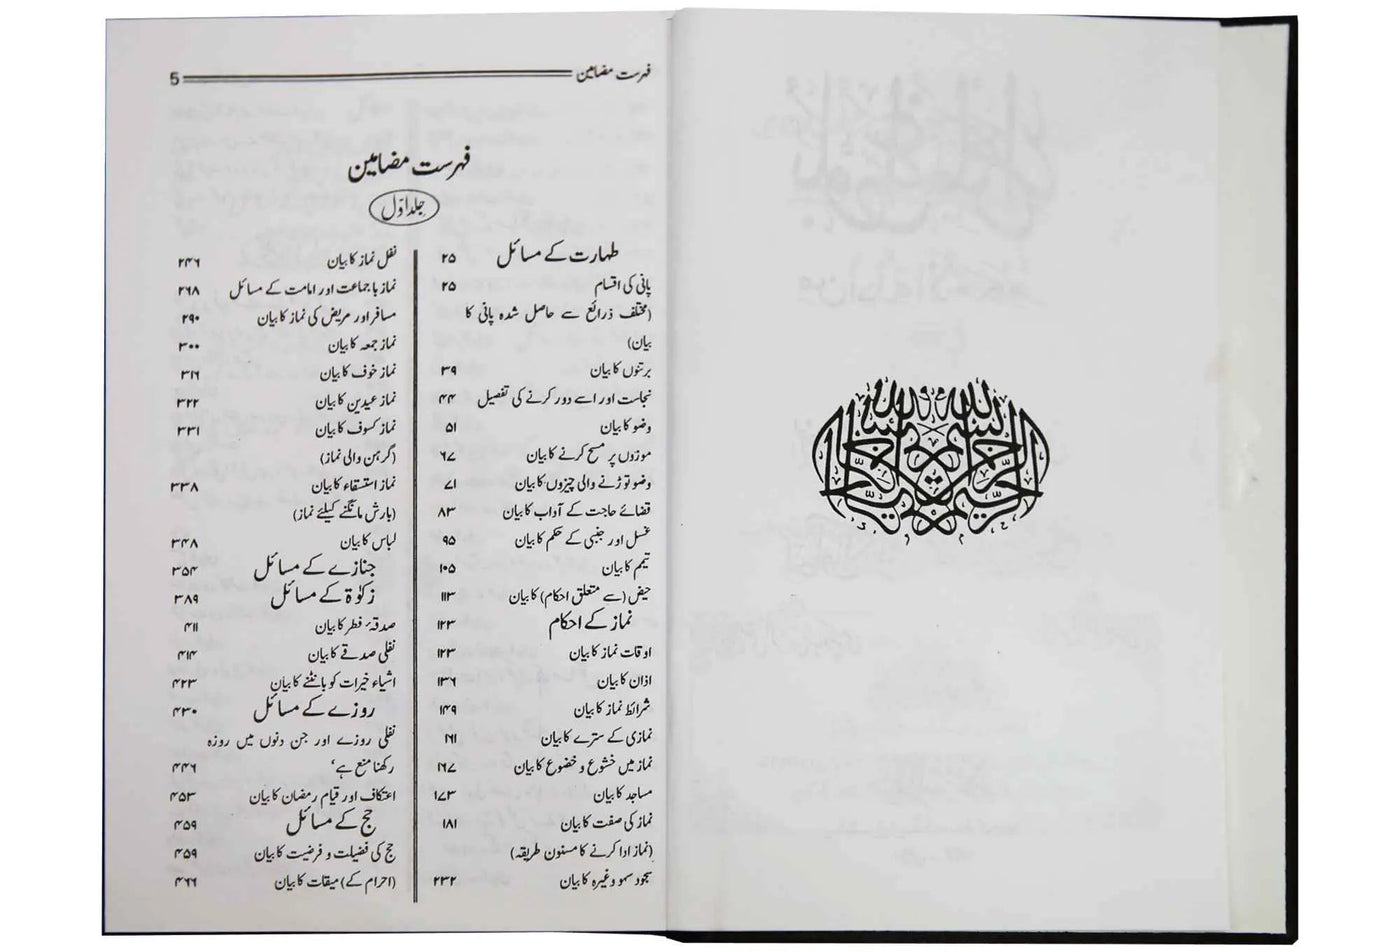 فہرست مضامین 5
فہرست مضامین
جلد اوّل
طہارت کے مسائل ۲۵
پانی کی اقسام ۲۵
(مختلف ذرائع سے حاصل شدہ پانی کا
بیان)
برتنوں کا بیان ۳۹
نجاست اور اسے دور کرنے کی تفصیل ۴۴
وضو کا بیان ۵۱
موزوں پر مسح کرنے کا بیان ۶۷
وضو توڑنے والی چیزوں کا بیان ۷۱
قضائے حاجت کے آداب کا بیان ۸۳
غسل اور جنبی کے حکم کا بیان ۹۵
تیمم کا بیان ۱۰۵
حیض (سے متعلق احکام) کا بیان ۱۱۳
نماز کے احکام ۱۲۳
اوقات نماز کا بیان ۱۲۳
اذان کا بیان ۱۳۶
شرائط نماز کا بیان ۱۴۹
نمازی کے سترے کا بیان ۱۶۱
نماز میں خشوع و خضوع کا بیان ۱۶۷
مساجد کا بیان ۱۷۳
نماز کی صفت کا بیان ۱۸۱
(نماز ادا کرنے کا مسنون طریقہ)
سجود سہو وغیرہ کا بیان ۲۳۲
نفل نماز کا بیان ۲۴۶
نماز باجماعت اور امامت کے مسائل ۲۶۸
مسافر اور مریض کی نماز کا بیان ۲۹۰
نماز جمعہ کا بیان ۳۰۰
نماز خوف کا بیان ۳۱۶
نماز عیدین کا بیان ۳۲۲
نماز کسوف کا بیان ۳۳۱
(گرہن والی نماز)
نماز استسقاء کا بیان ۳۳۸
(بارش مانگنے کیلئے نماز)
لباس کا بیان ۳۴۸
جنازے کے مسائل ۳۵۴
زکوٰۃ کے مسائل ۳۸۹
صدقہ فطر کا بیان ۴۱۱
نفلی صدقے کا بیان ۴۱۴
اشیاء خیرات کو بانٹنے کا بیان ۴۲۳
روزے کے مسائل ۴۳۰
نفلی روزے اور جن دنوں میں روزہ
رکھنا منع ہے، ۴۴۶
اعتکاف اور قیام رمضان کا بیان ۴۵۳
حج کے مسائل ۴۵۹
حج کی فضیلت و فرضیت کا بیان ۴۵۹
(احرام کے) میقات کا بیان ۴۶۶
بسم الله الرحمن الرحيم